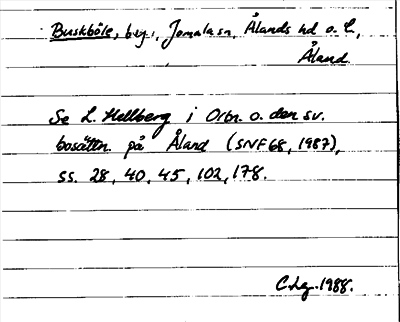 Buskböle, by i, Jomala sn, Ålands hd o. l,
Åland
Se L. Hellberg i Ortn. o. den sv.
bosättn. på Åland (SNF 68, 1987),
ss. 28, 40, 45, 102, 178.
1988.